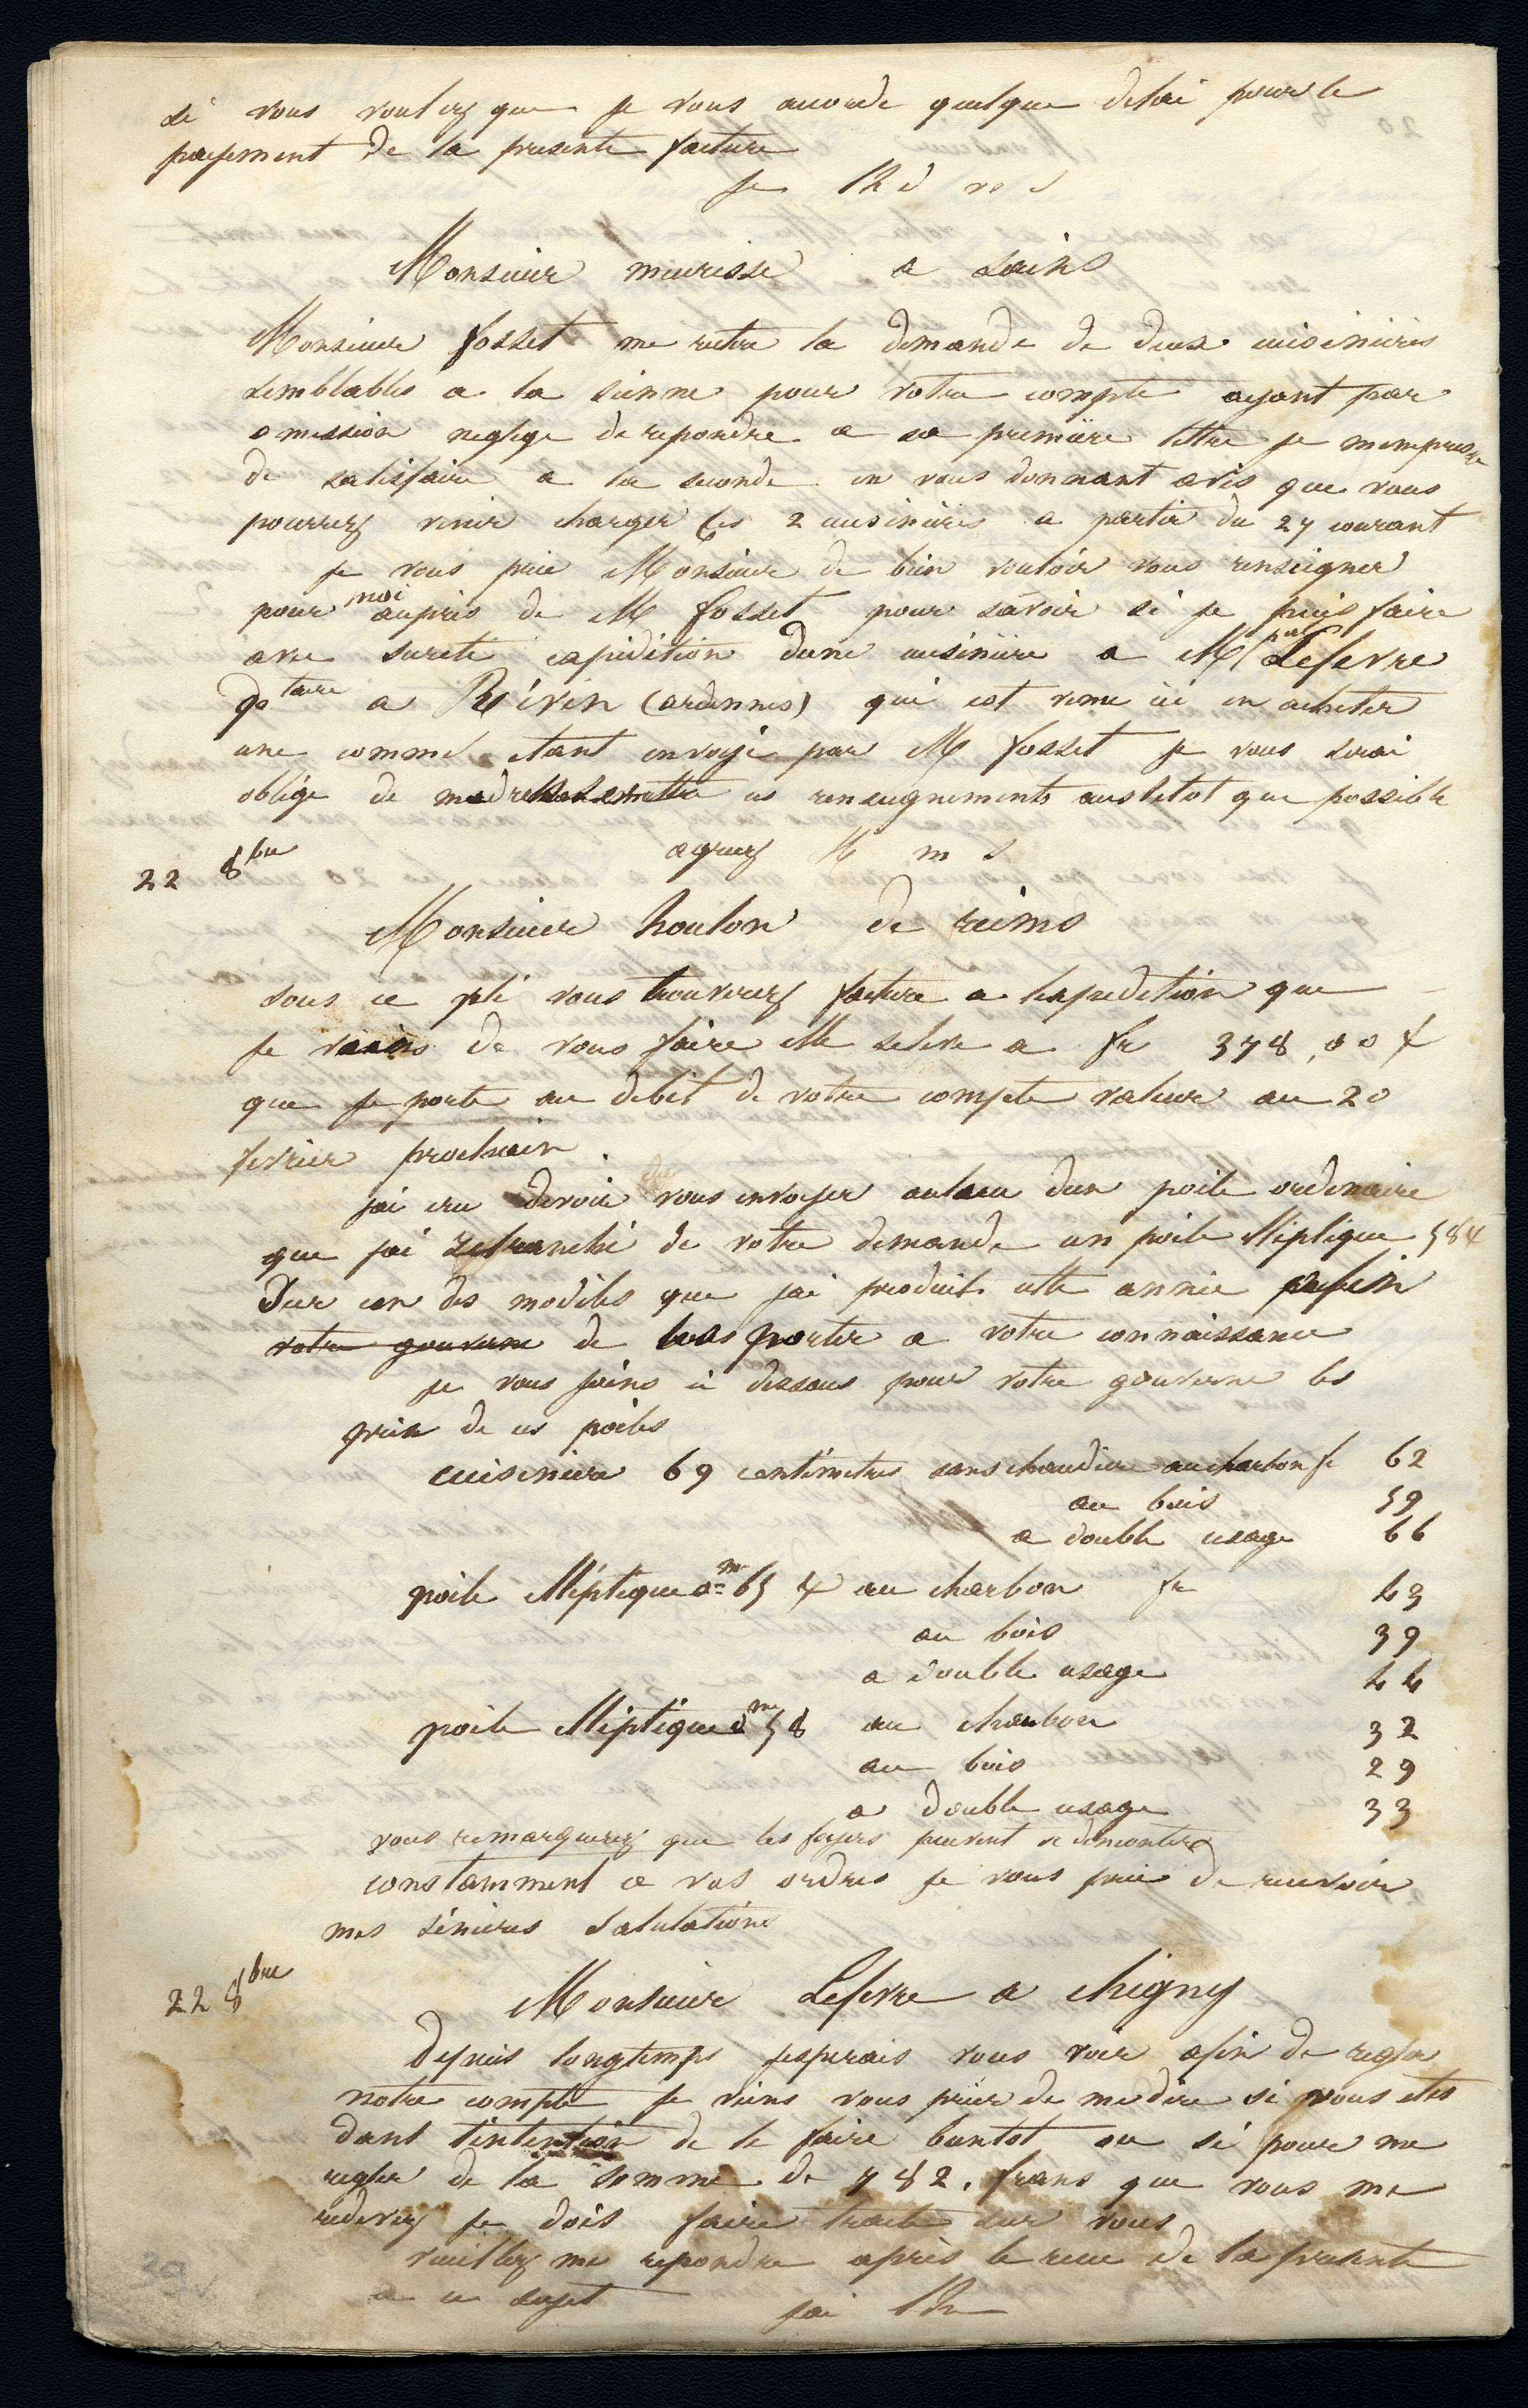 si vous voulez que je vous accorde quelque delai pour le
payement de la presente facture
je
Monsieur meurisse a sains
Monsieur fosset me reitre la demande de deux cuisinieres
semblables a la sienne pour votre compte ayant par
omission neglige de repondre a sa premiere lettre je mempresse
de satisfaire a la seconde en vous donnant avis que vous
pourrez venir charger les 2 cuisinieres a partir du 27 courant
je vous prie Monsieur de bien vouloir vous renseigner
pour moi aupres de M fosset pour savoir si je puis faire
avec sureté expedition dune cuisiniere a M Lefevre
a Révin (ardennes) qui est venu ici en acheter
une comme etant envoyé par M fosset je vous serai
obligé de ces renseignements aussitot que possible
agreez M m s
22 8bre
Monsieur houlon de reims
sous ce pli vous trouverez facture a lexpedition que
je viens de vous faire Elle seleve a fr 378,00
que je porte au debit de votre compte valeur au 20
fevrier prochain
jai cru devoir vous envoyer aulieu dun poile ordinaire
que jai retranché de votre demande un poile Eliptique 58
Sur un des modèles que jai produit cette année afin
votre gouverne de les porter a votre connaissance
je vous joins ci dessous pour votre gouverne les
prix de ces poiles
cuisiniere 69 centimetres sans chaudiere au charbon fr 62
au bois 59
a double usage 66
poile Eliptique 0m65 au charbon fr 43
au bois 39
a double usage 44
poile Eliptique 0m58 au charbon 32
au bois 29
a double usage 33
vous remarquerez que les foyers peuvent se demonter
constamment a vos ordres je vous prie de recevoir
mes sinceres Salutations
22 8bre
Monsieur Lefevre a chigny
Depuis longtemps jesperais vous voir afin de regler
notre compte je viens vous prier de me dire si vous etes
dans lintention de le faire bientot ou si pour me
regler de la somme de 782. francs que vous me
redevez je dois faire traite sur vous
veuillez me repondre après le recu de la presente
a ce sujet jai
39